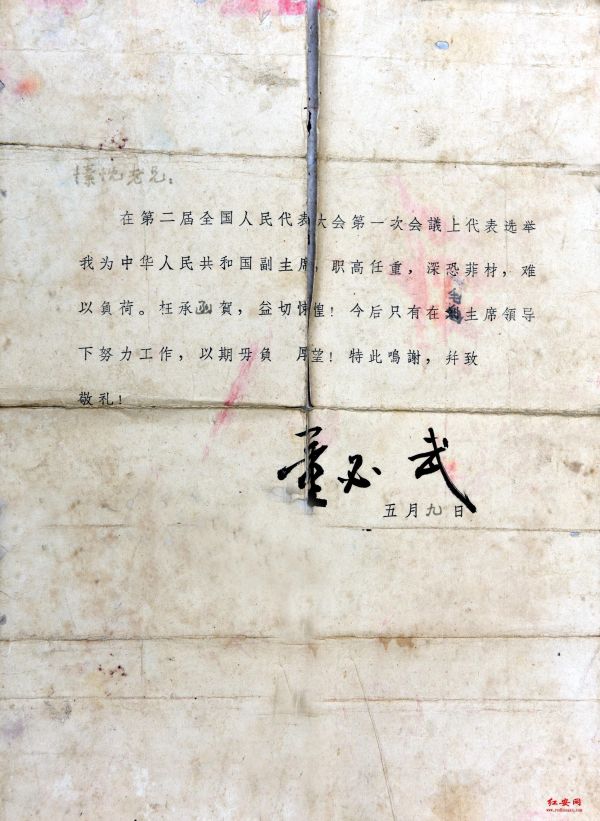 老兄：
在第二届全国人民代表大会第一次会議上代表选举
我为中华人民共和国副主席，职高任重，深恐菲材，难
以負荷。枉承函賀，益切悚惶！今后只有在毛主席領导
下努力工作，以期毋負 厚望！特此鳴謝，幷致
敬礼！
董必武
五月九日
红安网